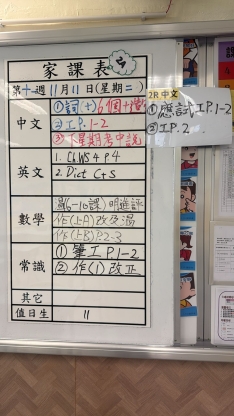 家課表
第十週 11月11日(星期二)
中文
①詞(十)6個+擔
②工P.1-2
③下星期考中說
英文
1. Ch.WS 4 P.4
2. Dict C+S
數學
作(上A)改及溫
作(上B)P.2-3
常識
①筆工P.1-2
②作(1)改正
其它
值日生
11
2R 中文
①應試工P.1-2
②工P.2